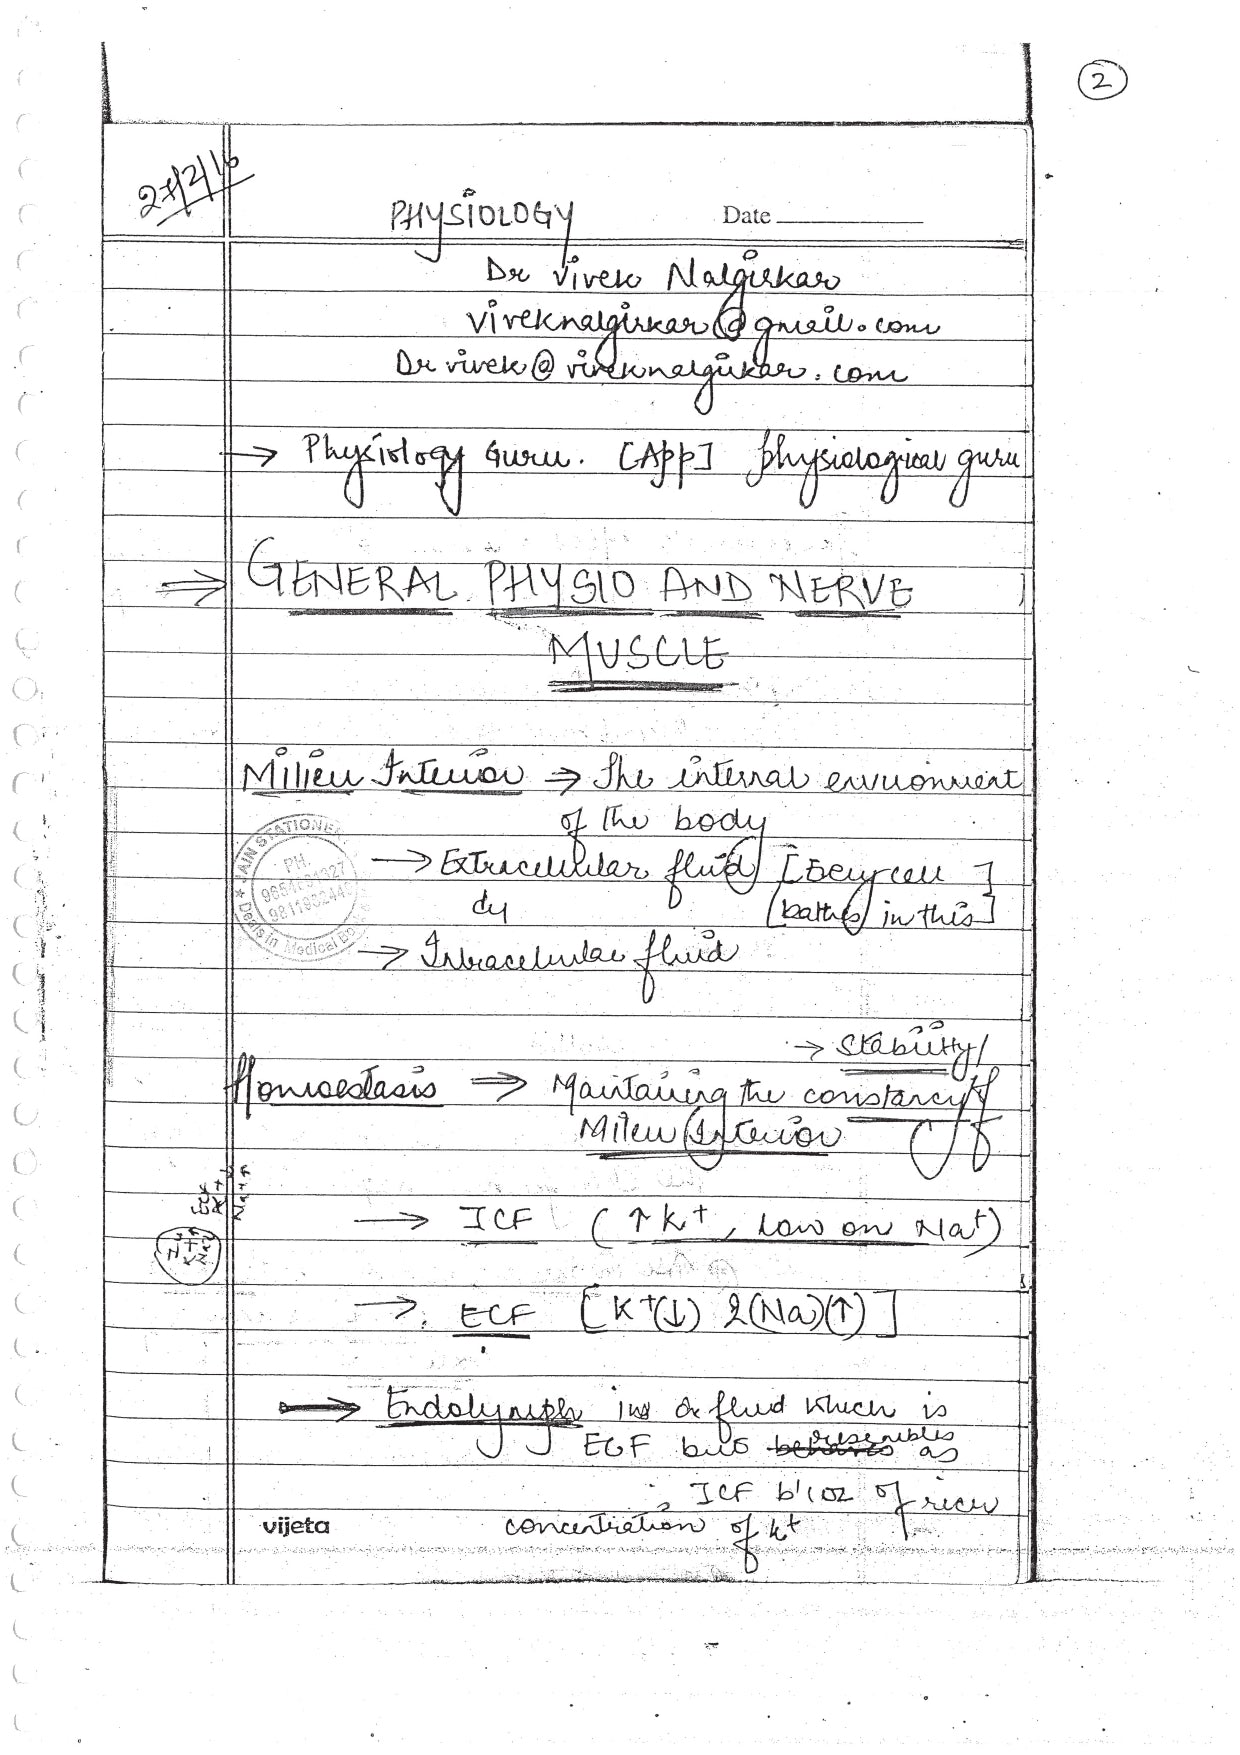 2
27/2/16
PHYSIOLOGY Date
Dr Vivek Nalgirkar
viveknalgirkar@gmail.com
Dr vivek@viveknalgirkar.com
→ Physiology Guru. [App] physiological guru
⇒ GENERAL PHYSIO AND NERVE
MUSCLE
Milieu Interior ⇒ The internal environment
of the body
→ Extracellular fluid [Every cell]
[bathes in this]
→ Intracellular fluid
JAIN STATIONE
PH.
Deals in Medical
→ Stability/
Homoestasis ⇒ Maintaining the constancy of
Milieu Interior
ECF
K+↓
Na+↑
→ ICF (↑K+, low on Na+)
K+↑
→ ECF [K+(↓) &(Na)(↑)]
→ Endolymph is a fluid which is
ECF but behaves resembles as
ICF b'coz of rich
concentration of K+
vijeta